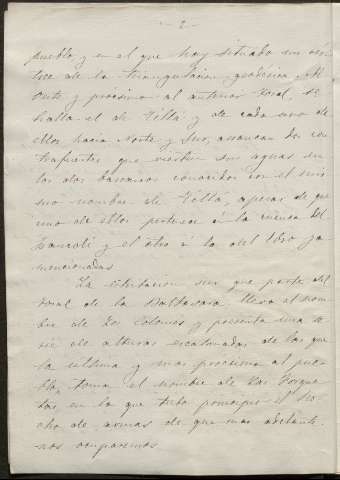 - 2 -
pueblo y en el que hay situado un vér-
tice de la triangulación geodésica. Al
Oeste y próximo al anterior tosal, se
halla el de Vellá y de cada uno de
ellos hacia Norte y Sur, arrancan dos con-
trafuertes que vierten sus aguas en
los dos barrancos conocidos con el mis-
mo nombre de Vellá, a pesar de que
uno de ellos pertenece á la cuenca del
Francolí y el otro á la del Ebro ya
mencionadas.
La estribación sur que parte del
tosal de la Baltasana lleva el nom-
bre de Los Colomés y presenta una se-
rie de alturas escalonadas de las que
la última y mas próxima al pue-
blo, toma el nombre de Las Forque-
tas, en la que tubo principio el he-
cho de armas de que mas adelante
nos ocuparemos.